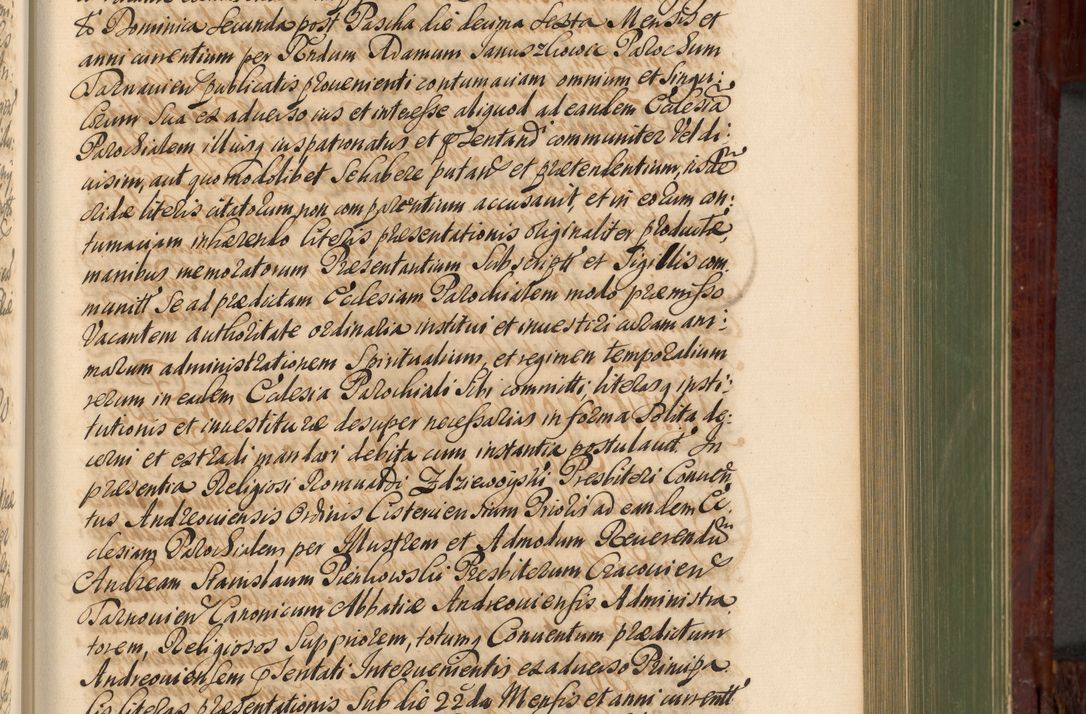 & Dominica secunda post Pascha die decima sexta Mensis et
anni currentium per Rndum Adamum Januszkowic Parochum
Tarnavien publicatis provenienti contumaciam omnium et singu:
lorum sua ex adverso ius et interesse aliquod ad eandem Ecclesia
Parochialem illiusq iuspatronatus et pzentandi communiter vel di:
uisim, aut quomodolibet se habere putan et prætendentium,
literis citatorum, non comparentium accusavit, et in eorum con:
tumaciam inhærendo literis præsentationis originaliter productæ,
manibus memoratorum Præsentantium subscript et Sigillis com
munitt se ad prædictam Ecclesiam Parochialem modo præmisso
Vacantem authoritate ordinaria institui et investiri curam ani:
marum administrationem Spiritualium, et regimen temporalium
rerum in eadem Ecclesia Parochiali sibi committi, literasq insti:
tutionis et investituræ desuper necessarias in forma solita de:
cerni et extradi mandari debita cum instantia postulavit. In
præsentia Religiosi Romualdi Zdziewoyski Presbiteri Conven
tus Andreoviensis Ordinis Cistercien sium Prioris ad eandem Ec:
clesiam Parochialem per Illustrem et Admodum Reverendu
Andream Stanislaum Pienkowski Presbiterum Cracovien
Tarnovien Canonicum Abbatiæ Andreoviensis Administra
torem, Religiosos Suppriorem, totumq Conventum prædictum
Andreoviensem pzentati Intervenientis ex adverso Principa
lis literas præsentationis sub die 22da Mensis et anni currentt